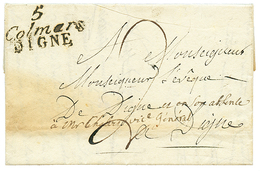 5
Colmars
DIGNE
A Monseigneur
Monseigneur L'évêque
De Digne et en son absence
à Mr vic. Général
Digne